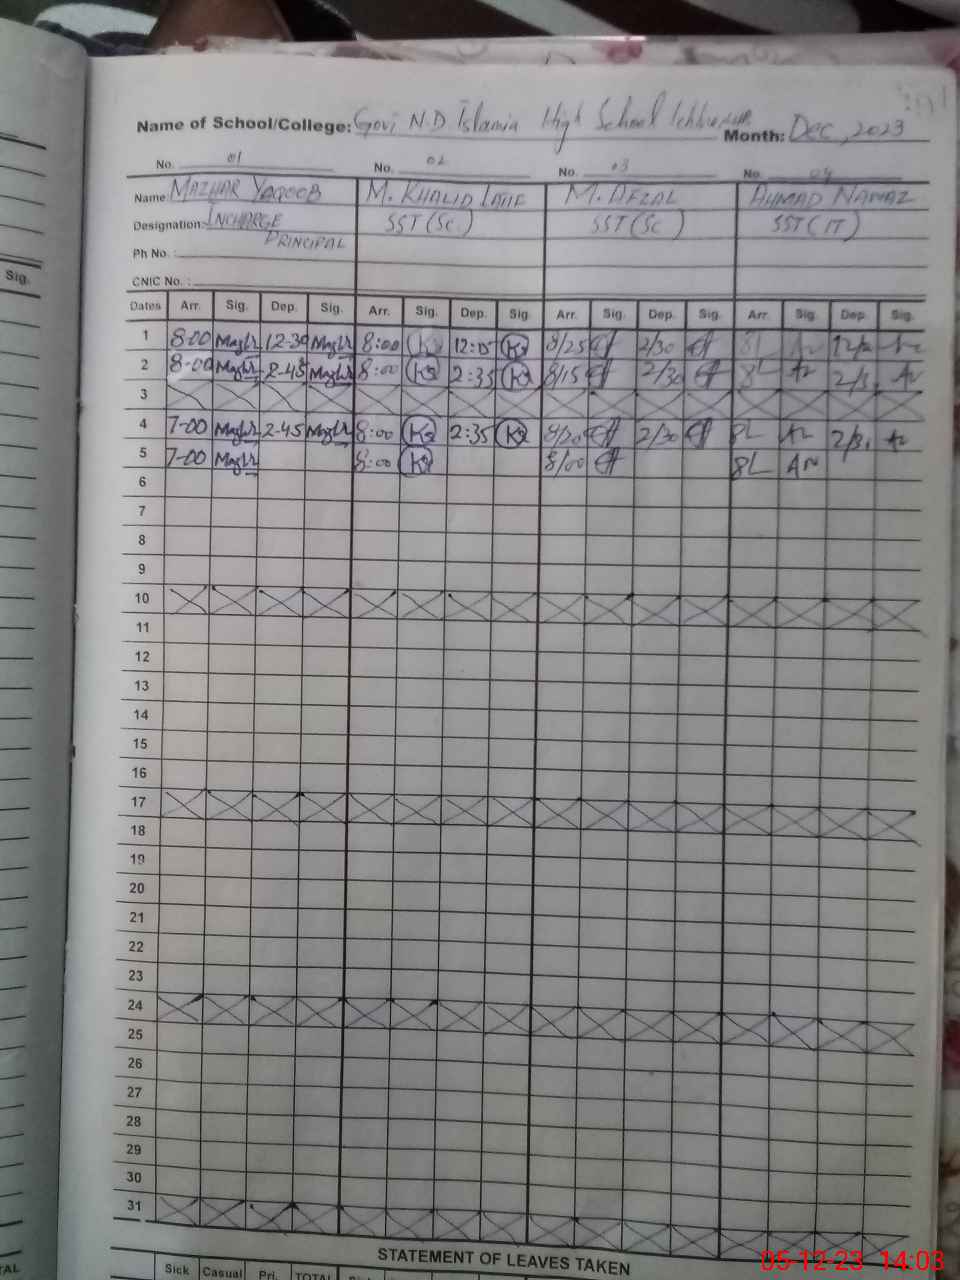 Name of School/College: Govt N.D Islamia High School Ichhra Month: Dec, 2023
No. 01 No. 02 No. 03 No. 04
Name MAZHAR YAQOOB M. KHALID LATIF M. AFZAL AHMAD NAWAZ
Designation: INCHARGE SST (Sc.) SST (SC) SST (IT)
PRINCIPAL
Ph No. :
CNIC No. :
Sig.
Dates Arr. Sig. Dep. Sig. Arr. Sig. Dep. Sig. Arr. Sig. Dep. Sig. Arr. Sig. Dep. Sig.
1 8-00 Mazhr 12-30 Mazhr 8:00 12:15 8/25 2/30
2 8-00 Mazhr 2-45 Mazhr 8:00 2:35 8/15 2/30
3
4 7-00 Mazhr 2-45 Mazhr 8:00 2:35 8/20 2/30
5 7-00 Mazhr 8:00 8/00
6
7
8
9
10
11
12
13
14
15
16
17
18
19
20
21
22
23
24
25
26
27
28
29
30
31
STATEMENT OF LEAVES TAKEN
Sick Casual Pri. TOTAL
05-12-23 14:03